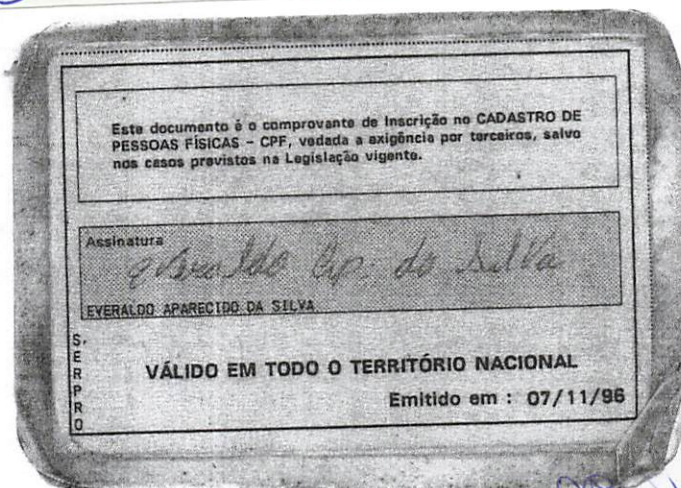 Este documento é o comprovante de Inscrição no CADASTRO DE
PESSOAS FÍSICAS - CPF, vedada a exigência por terceiros, salvo
nos casos previstos na Legislação vigente.
Assinatura
Everaldo Ap. da Silva
EVERALDO APARECIDO DA SILVA
SERPRO
VÁLIDO EM TODO O TERRITÓRIO NACIONAL
Emitido em : 07/11/96